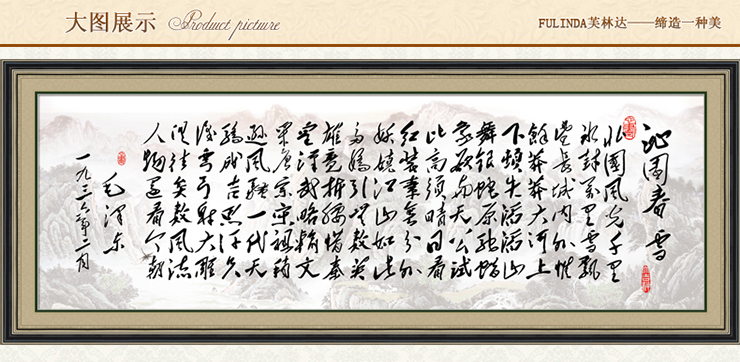 大图展示 Product picture
FULINDA芙林达——缔造一种美
沁園春 雪
北國風光千里
冰封万里雪飘
望长城内外惟
餘莽莽大河上
下顿失滔滔山
舞银蛇原驰蜡
象欲与天公试
比高须晴日看
红装素裹分外
妖娆江山如此
多娇引无数英
雄竞折腰惜秦
皇汉武略输文
采唐宗宋祖稍
逊风骚一代天
骄成吉思汗只
识弯弓射大雕
俱往矣数风流
人物还看今朝
毛泽东
一九三六年二月